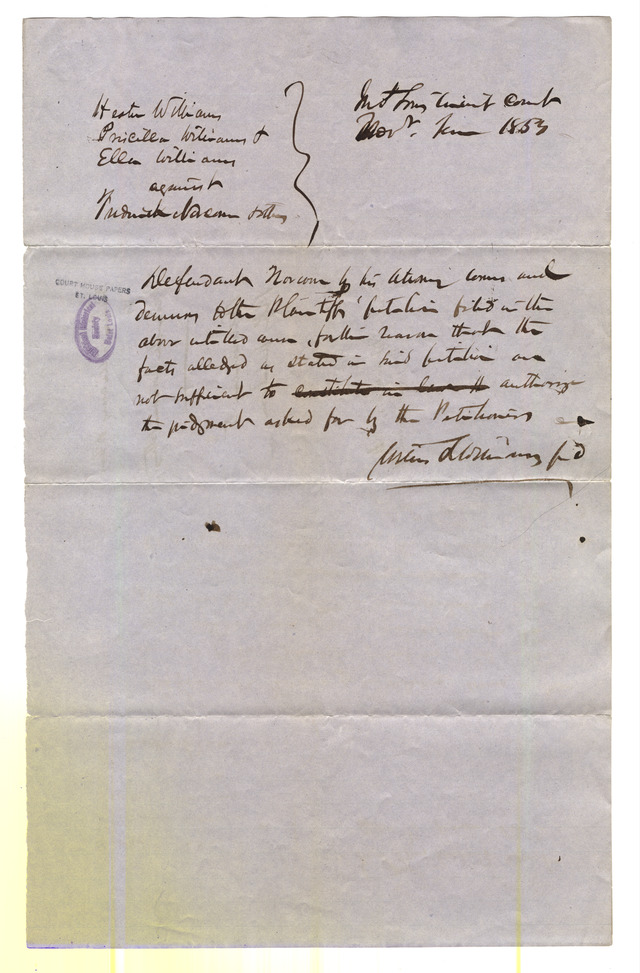 Hester Williams
Priscilla Williams &
Ella Williams
against
Fredrick Norcom & others
In St Louis Circuit Court
Novr. Term 1853
Defendant Norcom by his attorney comes and
demurs to the Plaintiffs' petition filed in the
above entitled cause, for the reason that the
facts alleged as stated in said petition are
not sufficient to constitute in law authorize
the judgment asked for by the Petitioners
COURT HOUSE PAPERS
ST. LOUIS
Missouri Historical
Society
Saint Louis